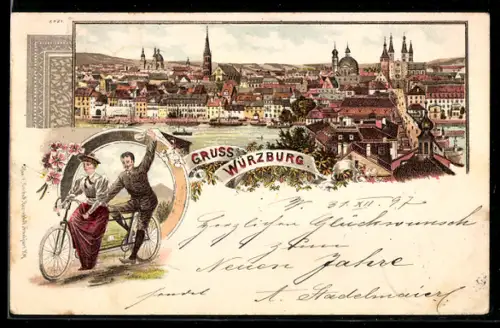 GRUSS
aus
WÜRZBURG
31. XII. 97
Herzlichen Glückwunsch
zum
Neuen Jahre
sendet A. Stadelmaier